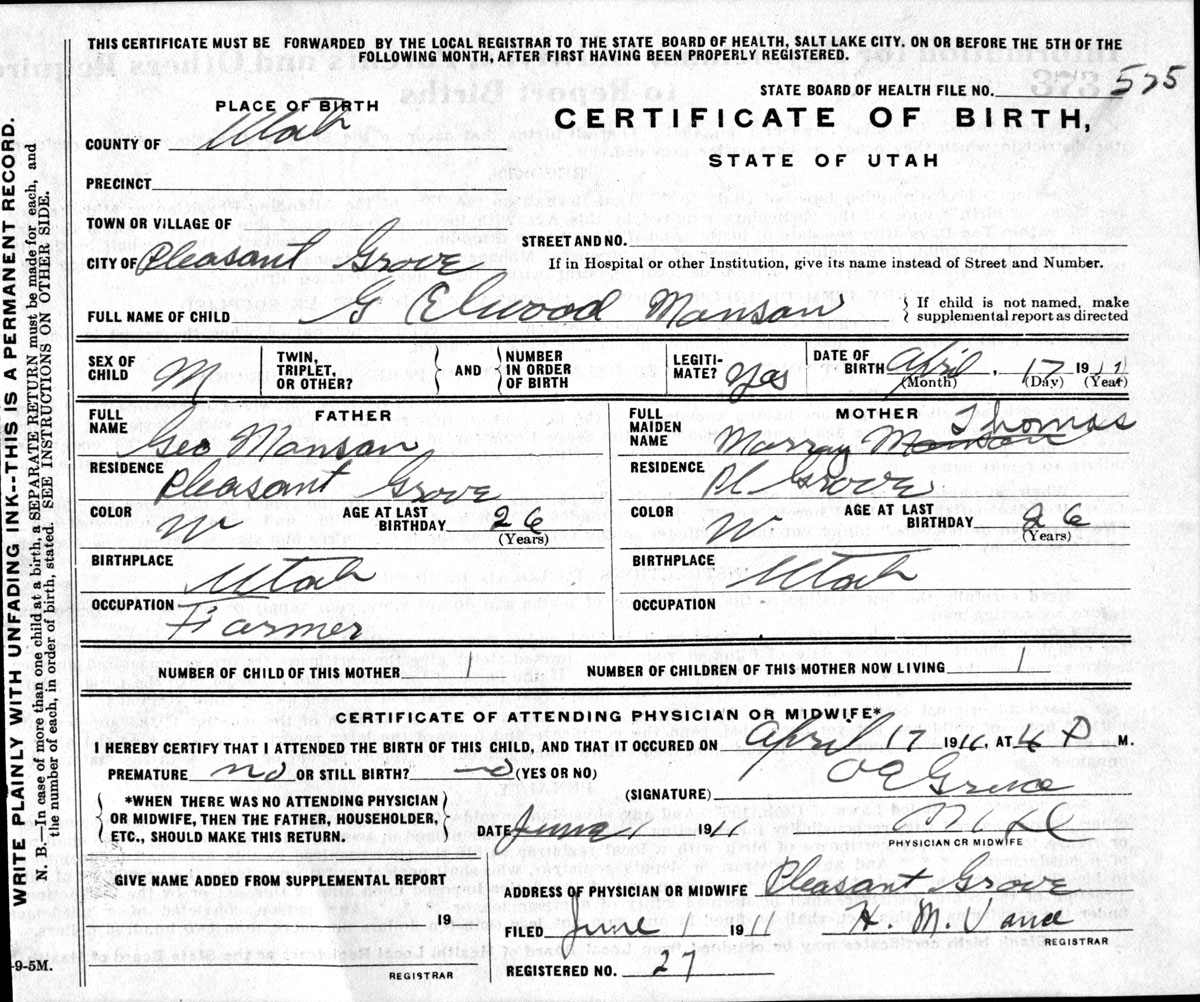 THIS CERTIFICATE MUST BE FORWARDED BY THE LOCAL REGISTRAR TO THE STATE BOARD OF HEALTH, SALT LAKE CITY. ON OR BEFORE THE 5TH OF THE
FOLLOWING MONTH, AFTER FIRST HAVING BEEN PROPERLY REGISTERED.
STATE BOARD OF HEALTH FILE NO. 575
PLACE OF BIRTH
CERTIFICATE OF BIRTH,
STATE OF UTAH
COUNTY OF Utah
PRECINCT
TOWN OR VILLAGE OF
STREET AND NO.
CITY OF Pleasant Grove
If in Hospital or other Institution, give its name instead of Street and Number.
FULL NAME OF CHILD G Elwood Manson
If child is not named, make
supplemental report as directed
SEX OF CHILD M
TWIN, TRIPLET, OR OTHER?
AND
NUMBER IN ORDER OF BIRTH
LEGITI-MATE? yes
DATE OF BIRTH April 17 1911
(Month) (Day) (Year)
FATHER
FULL NAME Geo Manson
RESIDENCE Pleasant Grove
COLOR W
AGE AT LAST BIRTHDAY 26
(Years)
BIRTHPLACE Utah
OCCUPATION Farmer
MOTHER
FULL MAIDEN NAME Murray Manson Thomas
RESIDENCE Pl Grove
COLOR W
AGE AT LAST BIRTHDAY 26
(Years)
BIRTHPLACE Utah
OCCUPATION
NUMBER OF CHILD OF THIS MOTHER 1
NUMBER OF CHILDREN OF THIS MOTHER NOW LIVING 1
CERTIFICATE OF ATTENDING PHYSICIAN OR MIDWIFE*
I HEREBY CERTIFY THAT I ATTENDED THE BIRTH OF THIS CHILD, AND THAT IT OCCURED ON April 17 1911, AT 4 P M.
PREMATURE no OR STILL BIRTH? no (YES OR NO)
*WHEN THERE WAS NO ATTENDING PHYSICIAN
OR MIDWIFE, THEN THE FATHER, HOUSEHOLDER,
ETC., SHOULD MAKE THIS RETURN.
(SIGNATURE)
DATE June 1 1911
M D
PHYSICIAN OR MIDWIFE
GIVEN NAME ADDED FROM SUPPLEMENTAL REPORT
19
REGISTRAR
ADDRESS OF PHYSICIAN OR MIDWIFE Pleasant Grove
FILED June 1 1911
REGISTRAR
REGISTERED NO. 27
WRITE PLAINLY WITH UNFADING INK--THIS IS A PERMANENT RECORD.
N. B.—In case of more than one child at a birth, a SEPARATE RETURN must be made for each, and
the number of each, in order of birth, stated. SEE INSTRUCTIONS ON OTHER SIDE.
-9-5M.